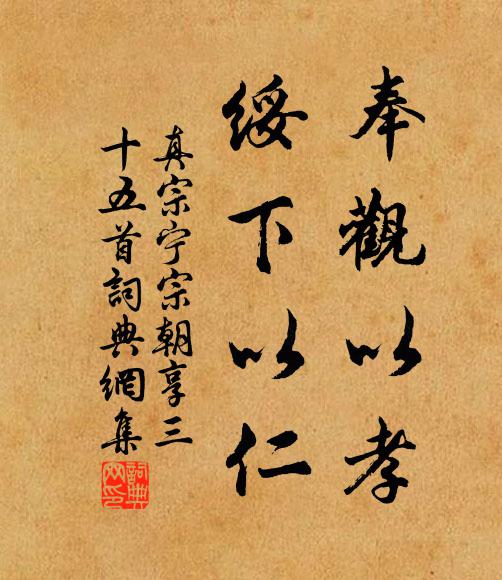 奉觀以孝
綏下以仁
真宗宁宗朝享三
十五首詞典網集
詞典网印